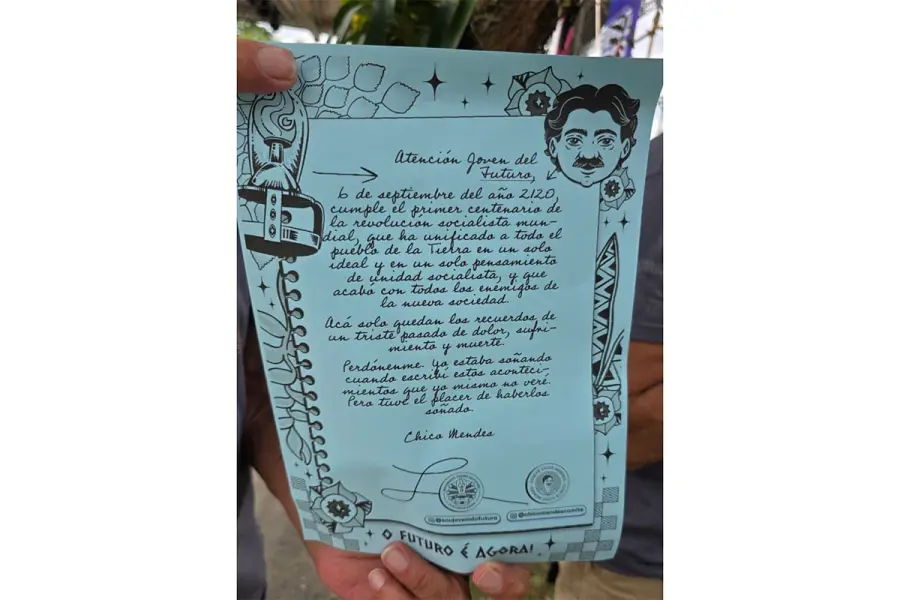 Atención Joven del
Futuro,
6 de septiembre del año 2120,
cumple el primer centenario de
la revolución socialista mun
dial, que ha unificado a todo el
pueblo de la Tierra en un solo
ideal y en un solo pensamiento
de unidad socialista, y que
acabó con todos los enemigos de
la nueva sociedad.
Acá solo quedan los recuerdos de
un triste pasado de dolor, sufri-
miento y muerte.
Perdónenme. Yo estaba soñando
cuando escribí estos aconteci-
mientos que yo mismo no veré.
Pero tuve el placer de haberlos
soñado.
Chico Mendes
@soujovemdofuturo
@chicomendescomite
O FUTURO É AGORA!